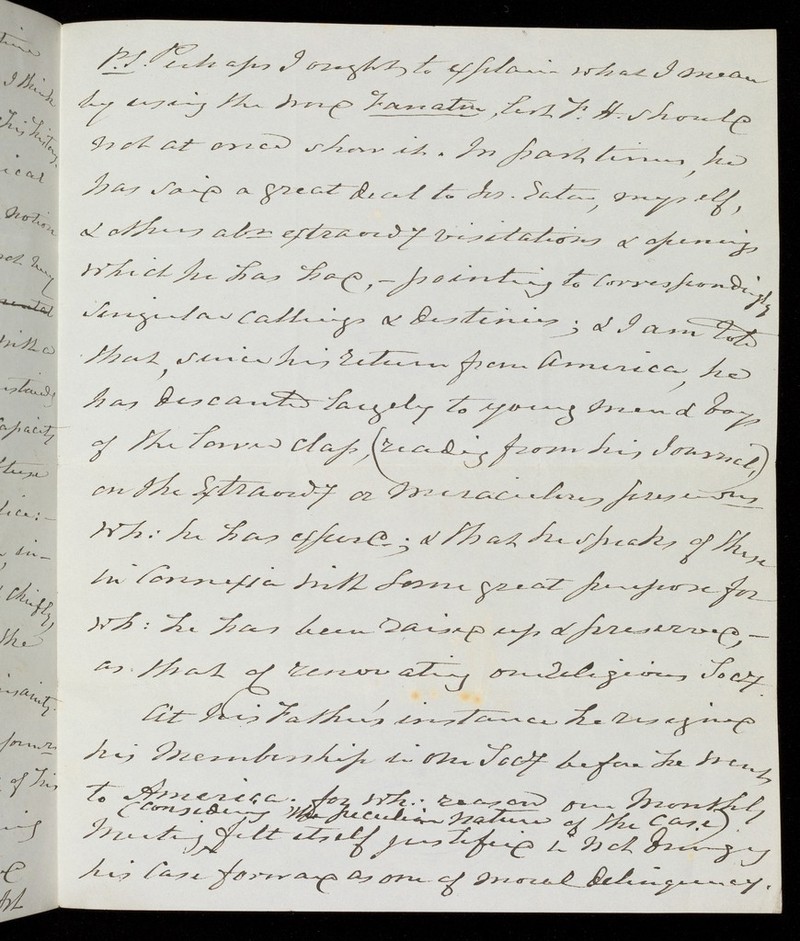 time
I think
his history
ical
notion
not my
with a
capacity
these
in-
chiefly,
the
insanity.
of his
P.S. Perhaps I ought to explain what I mean
by using the word Fanatic, lest F. H. should
not at once show it. In past times, he
has said a great deal to Dr. Eaton, myself,
& others abt extraordy visitations & openings
which he has had, – pointing to correspondingly
singular callings & destinies; & I am told
that, since his return from America, he
has descanted largely to young men & boys
of the lower class, (reading from his Journal,)
on the Extraordy or miraculous preservons
wh: he has experd.; & that he speaks of these
in connexion with some great purpose for
wh: he has been raised up & preserved, –
as that of renovating our religious Socy.
At his Father's instance he resigned
his Membership in our Socy before he went
to America: for wh: reason our Monthly
(considering the peculiar nature of the case)
Meeting felt itself justified in not bringing
his case forward as one of moral delinquency.